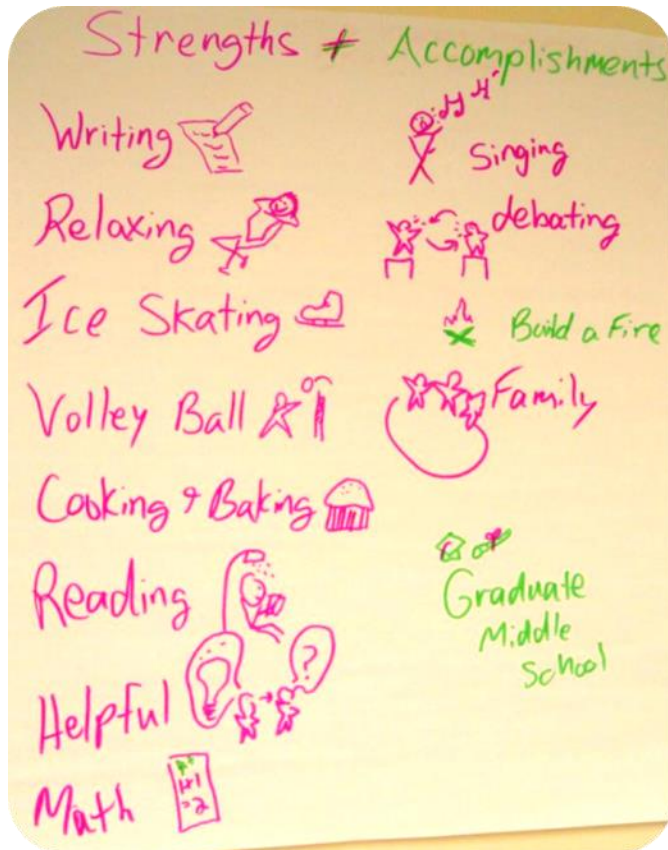 Strengths + Accomplishments
Writing
Relaxing
Ice Skating
Volley Ball
Cooking & Baking
Reading
Helpful
?
Math
A+
1+1
=2
Singing
debating
Build a Fire
Family
Graduate
Middle
School